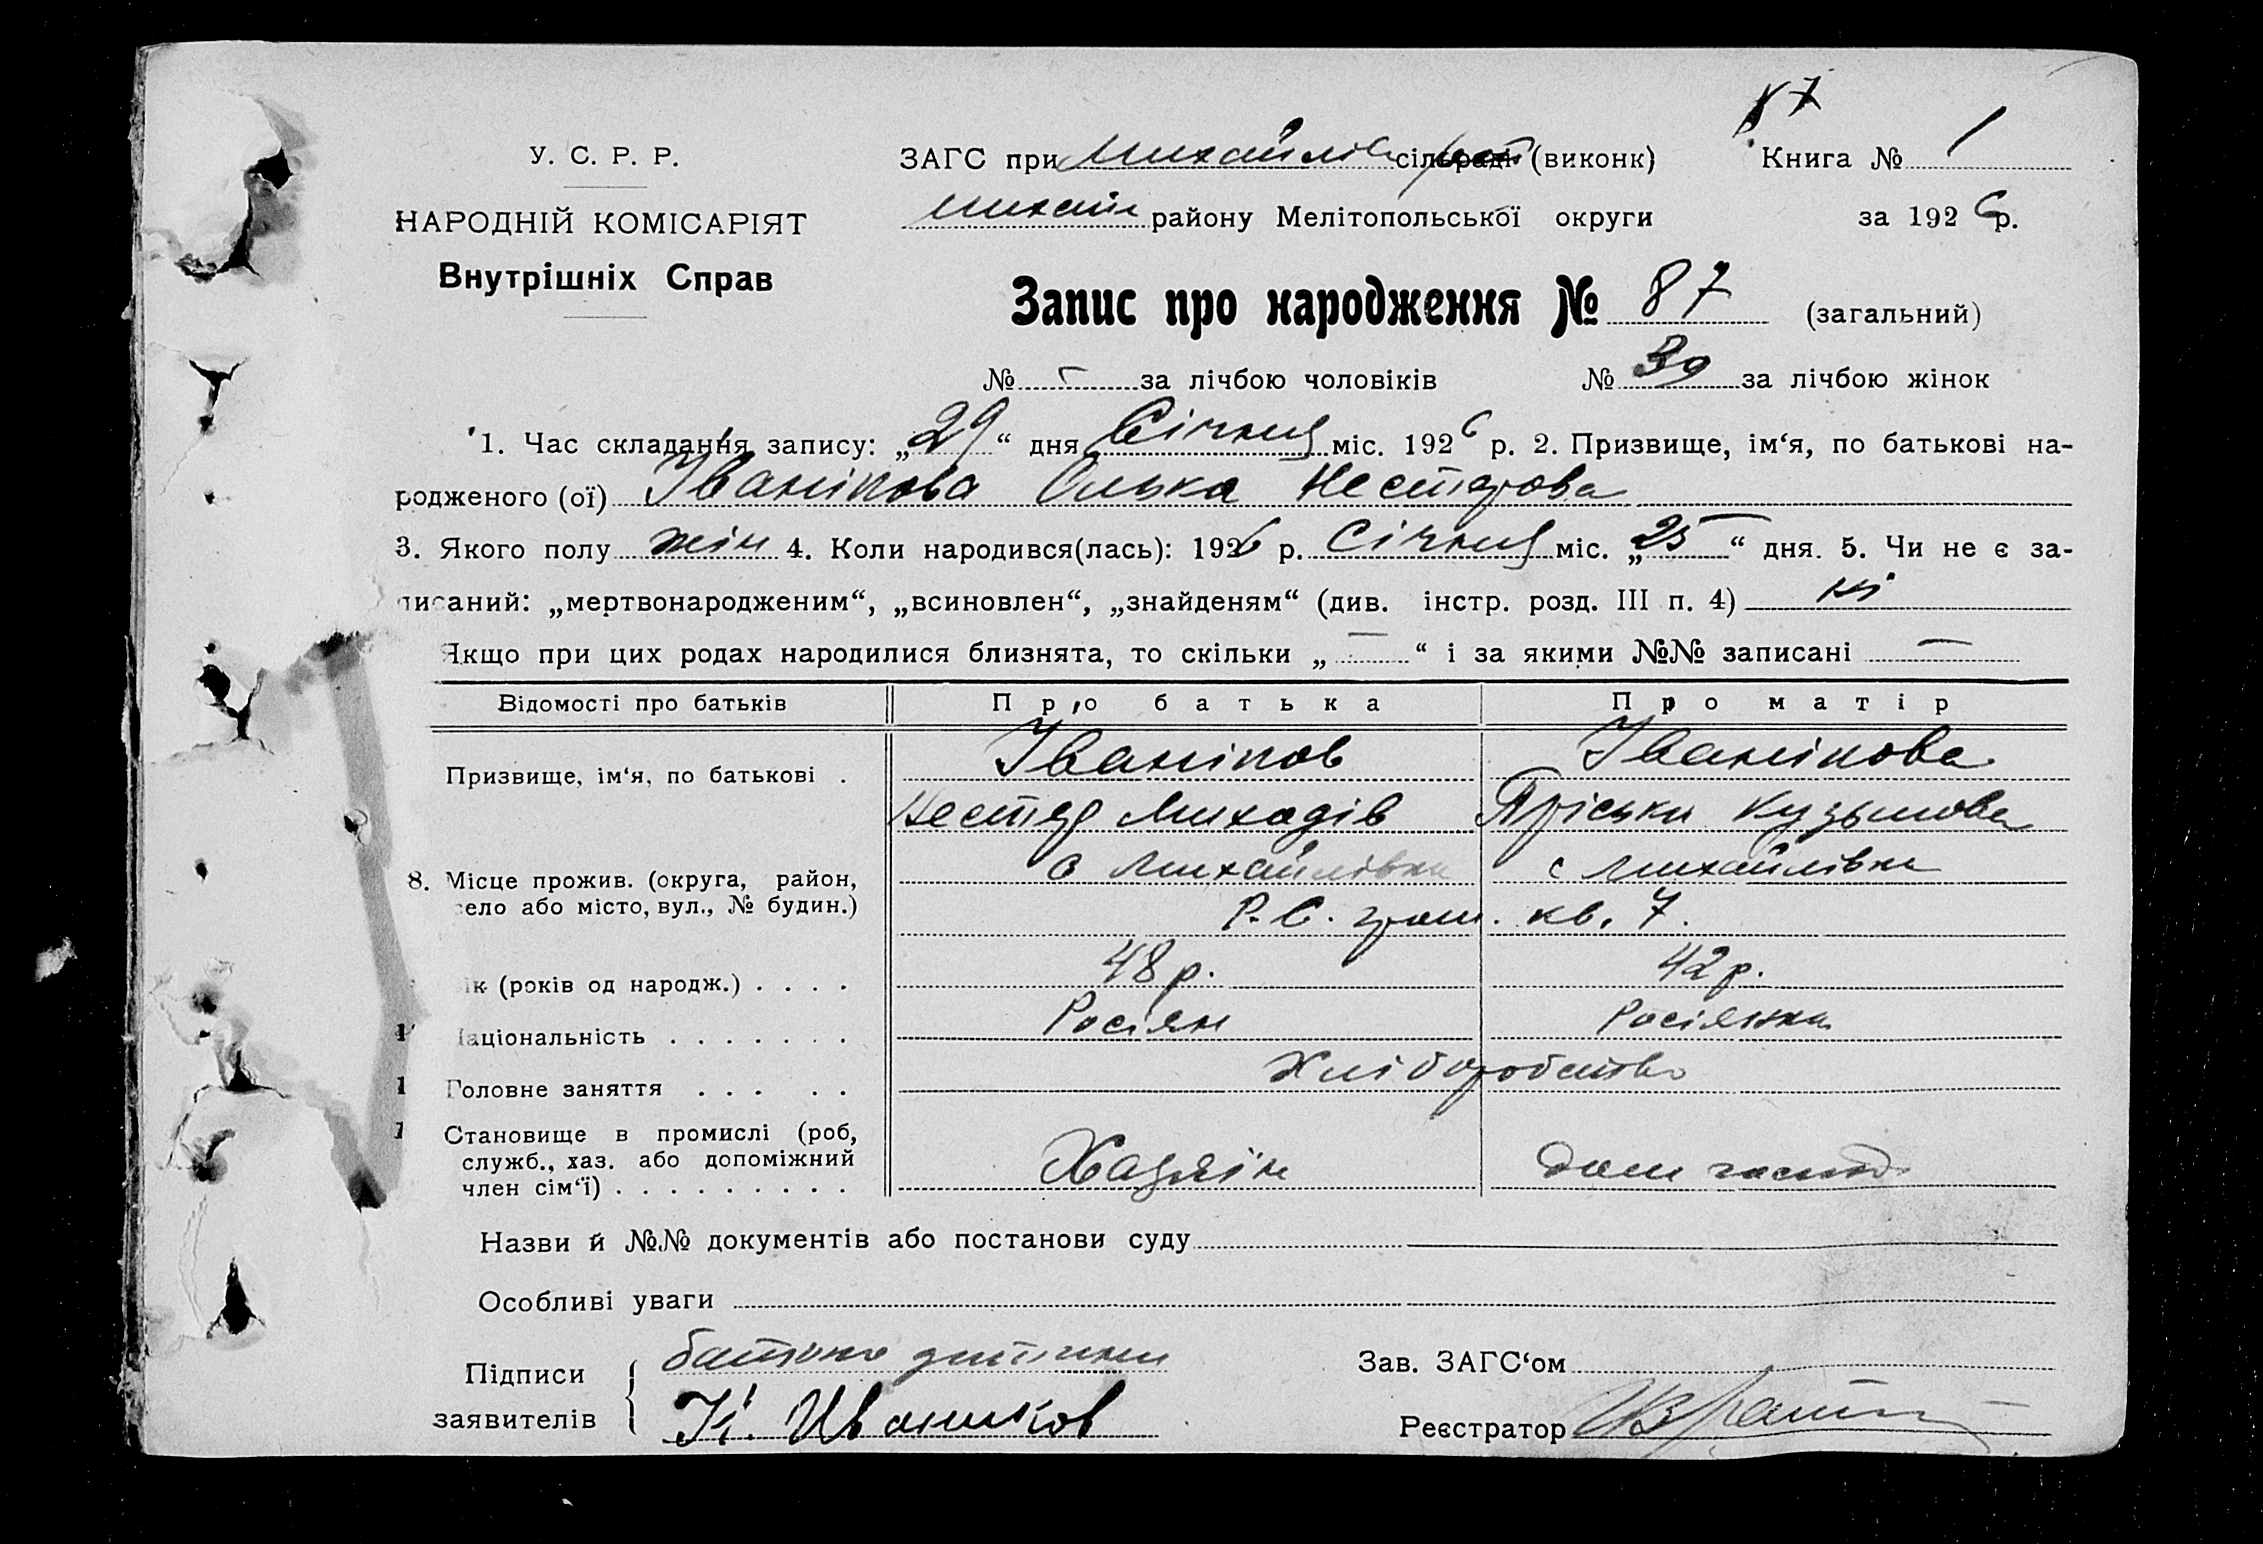 87
У. С. Р. Р.
ЗАГС при Михайлів сільраді (виконк) Книга № 1
НАРОДНІЙ КОМІСАРІЯТ
Михайл району Мелітопольської округи за 1926 р.
Внутрішніх Справ
Запис про народження № 87 (загальний)
№ – за лічбою чоловіків № 39 за лічбою жінок
1. Час складання запису: „29“ дня Січния міс. 1926 р. 2. Призвище, ім‘я, по батькові на-
родженого (ої) Іванікова Олька Нестерова
3. Якого полу жін 4. Коли народився(лась): 1926 р. Січния міс. „25“ дня. 5. Чи не є за-
писаний: „мертвонародженим“, „всиновлен“, „знайденям“ (див. інстр. розд. III п. 4) ні
Якщо при цих родах народилися близнята, то скільки „ – “ і за якими №№ записані –
Відомості про батьків Про батька Про матір
Призвище, ім‘я, по батькові . Іваніков Іванікова
Нестер Миходів Пріська Кузьмова
8. Місце прожив. (округа, район, с Михайлівка с Михайлівка
село або місто, вул., № будин.) Р. С. гром. кв. 7.
ік (років од народж.) . . . . 48 р. 42 р.
1 Національність . . . . . . . Росіян Росіянка
1 Головне заняття . . . . . Хліборобство
1 Становище в промислі (роб, служб., хаз. або допоміжний член сім‘ї) . . . . . . . . . Хазяін дом господ
Назви й №№ документів або постанови суду
Особливі уваги
Підписи батько дитини Зав. ЗАГС‘ом
заявителів Н. Иваников Реєстратор